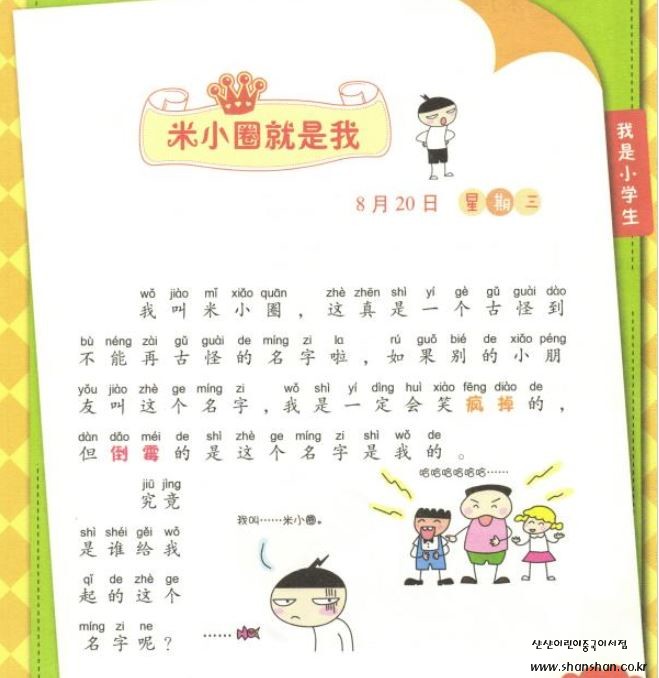 米小圈就是我
8月20日 星期三
我是小学生
wǒ jiào mǐ xiǎo quān zhè zhēn shì yí gè gǔ guài dào
我叫米小圈，这真是一个古怪到
bù néng zài gǔ guài de míng zi la rú guǒ bié de xiǎo péng
不能再古怪的名字啦，如果别的小朋
yǒu jiào zhè ge míng zi wǒ shì yí dìng huì xiào fēng diào de
友叫这个名字，我是一定会笑疯掉的，
dàn dǎo méi de shì zhè ge míng zi shì wǒ de
但倒霉的是这个名字是我的。
jiū jìng
究竟
shì shéi gěi wǒ
是谁给我
qǐ de zhè ge
起的这个
míng zi ne
名字呢？
我叫……米小圈。
哈哈哈哈哈哈……
……
산산어린이중국어서점
www.shanshan.co.kr